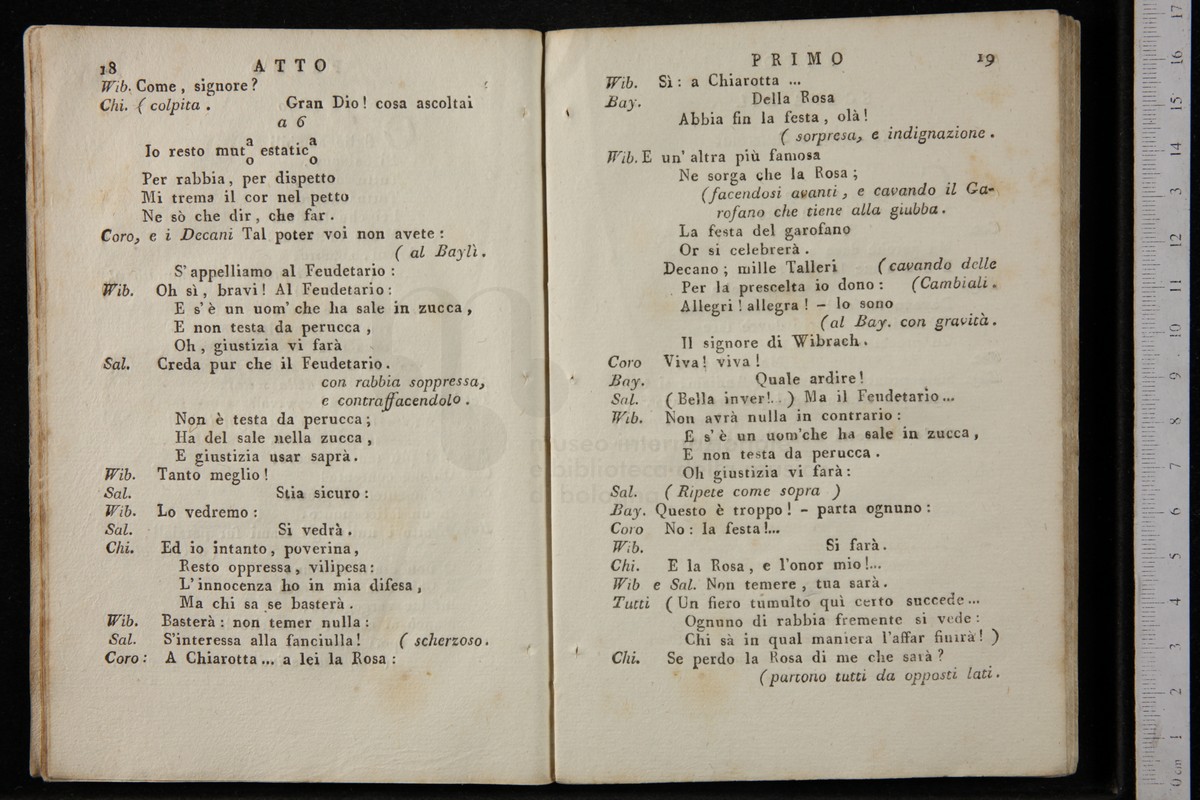 18 ATTO
Wib. Come, signore?
Chi. (colpita. Gran Dio! cosa ascoltai
a 6
Io resto mut a/o estatic a/o
Per rabbia, per dispetto
Mi trema il cor nel petto
Ne sò che dir, che far.
Coro, e i Decani Tal poter voi non avete:
(al Baylì.
S'appelliamo al Feudetario:
Wib. Oh sì, bravi! Al Feudetario:
E s'è un uom' che ha sale in zucca,
E non testa da perucca,
Oh, giustizia vi farà
Sal. Creda pur che il Feudetario.
con rabbia soppressa,
e contraffacendolo.
Non è testa da perucca;
Ha del sale nella zucca,
E giustizia usar saprà.
Wib. Tanto meglio!
Sal. Stia sicuro:
Wib. Lo vedremo:
Sal. Si vedrà.
Chi. Ed io intanto, poverina,
Resto oppressa, vilipesa:
L'innocenza ho in mia difesa,
Ma chi sa se basterà.
Wib. Basterà: non temer nulla:
Sal. S'interessa alla fanciulla! (scherzoso.
Coro: A Chiarotta... a lei la Rosa:
PRIMO 19
Wib. Sì: a Chiarotta ...
Bay. Della Rosa
Abbia fin la festa, olà!
(sorpresa, e indignazione.
Wib. E un' altra più famosa
Ne sorga che la Rosa;
(facendosi avanti, e cavando il Ga-
rofano che tiene alla giubba.
La festa del garofano
Or si celebrerà.
Decano; mille Talleri (cavando delle
Per la prescelta io dono: (Cambiali.
Allegri! allegra! - Io sono
(al Bay. con gravità.
Il signore di Wibrach.
Coro Viva! viva!
Bay. Quale ardire!
Sal. (Bella inver!..) Ma il Feudetario...
Wib. Non avrà nulla in contrario:
E s'è un uom'che ha sale in zucca,
E non testa da perucca.
Oh giustizia vi farà:
Sal. (Ripete come sopra)
Bay. Questo è troppo! - parta ognuno:
Coro No: la festa!...
Wib. Si farà.
Chi. E la Rosa, e l'onor mio!...
Wib e Sal. Non temere, tua sarà.
Tutti (Un fiero tumulto quì certo succede...
Ognuno di rabbia fremente si vede:
Chi sà in qual maniera l'affar finirà!)
Chi. Se perdo la Rosa di me che sarà?
(partono tutti da opposti lati.
museo internazionale
e biblioteca della musica
di bologna
0 cm 1 2 3 4 5 6 7 8 9 10 11 12 13 14 15 16 17